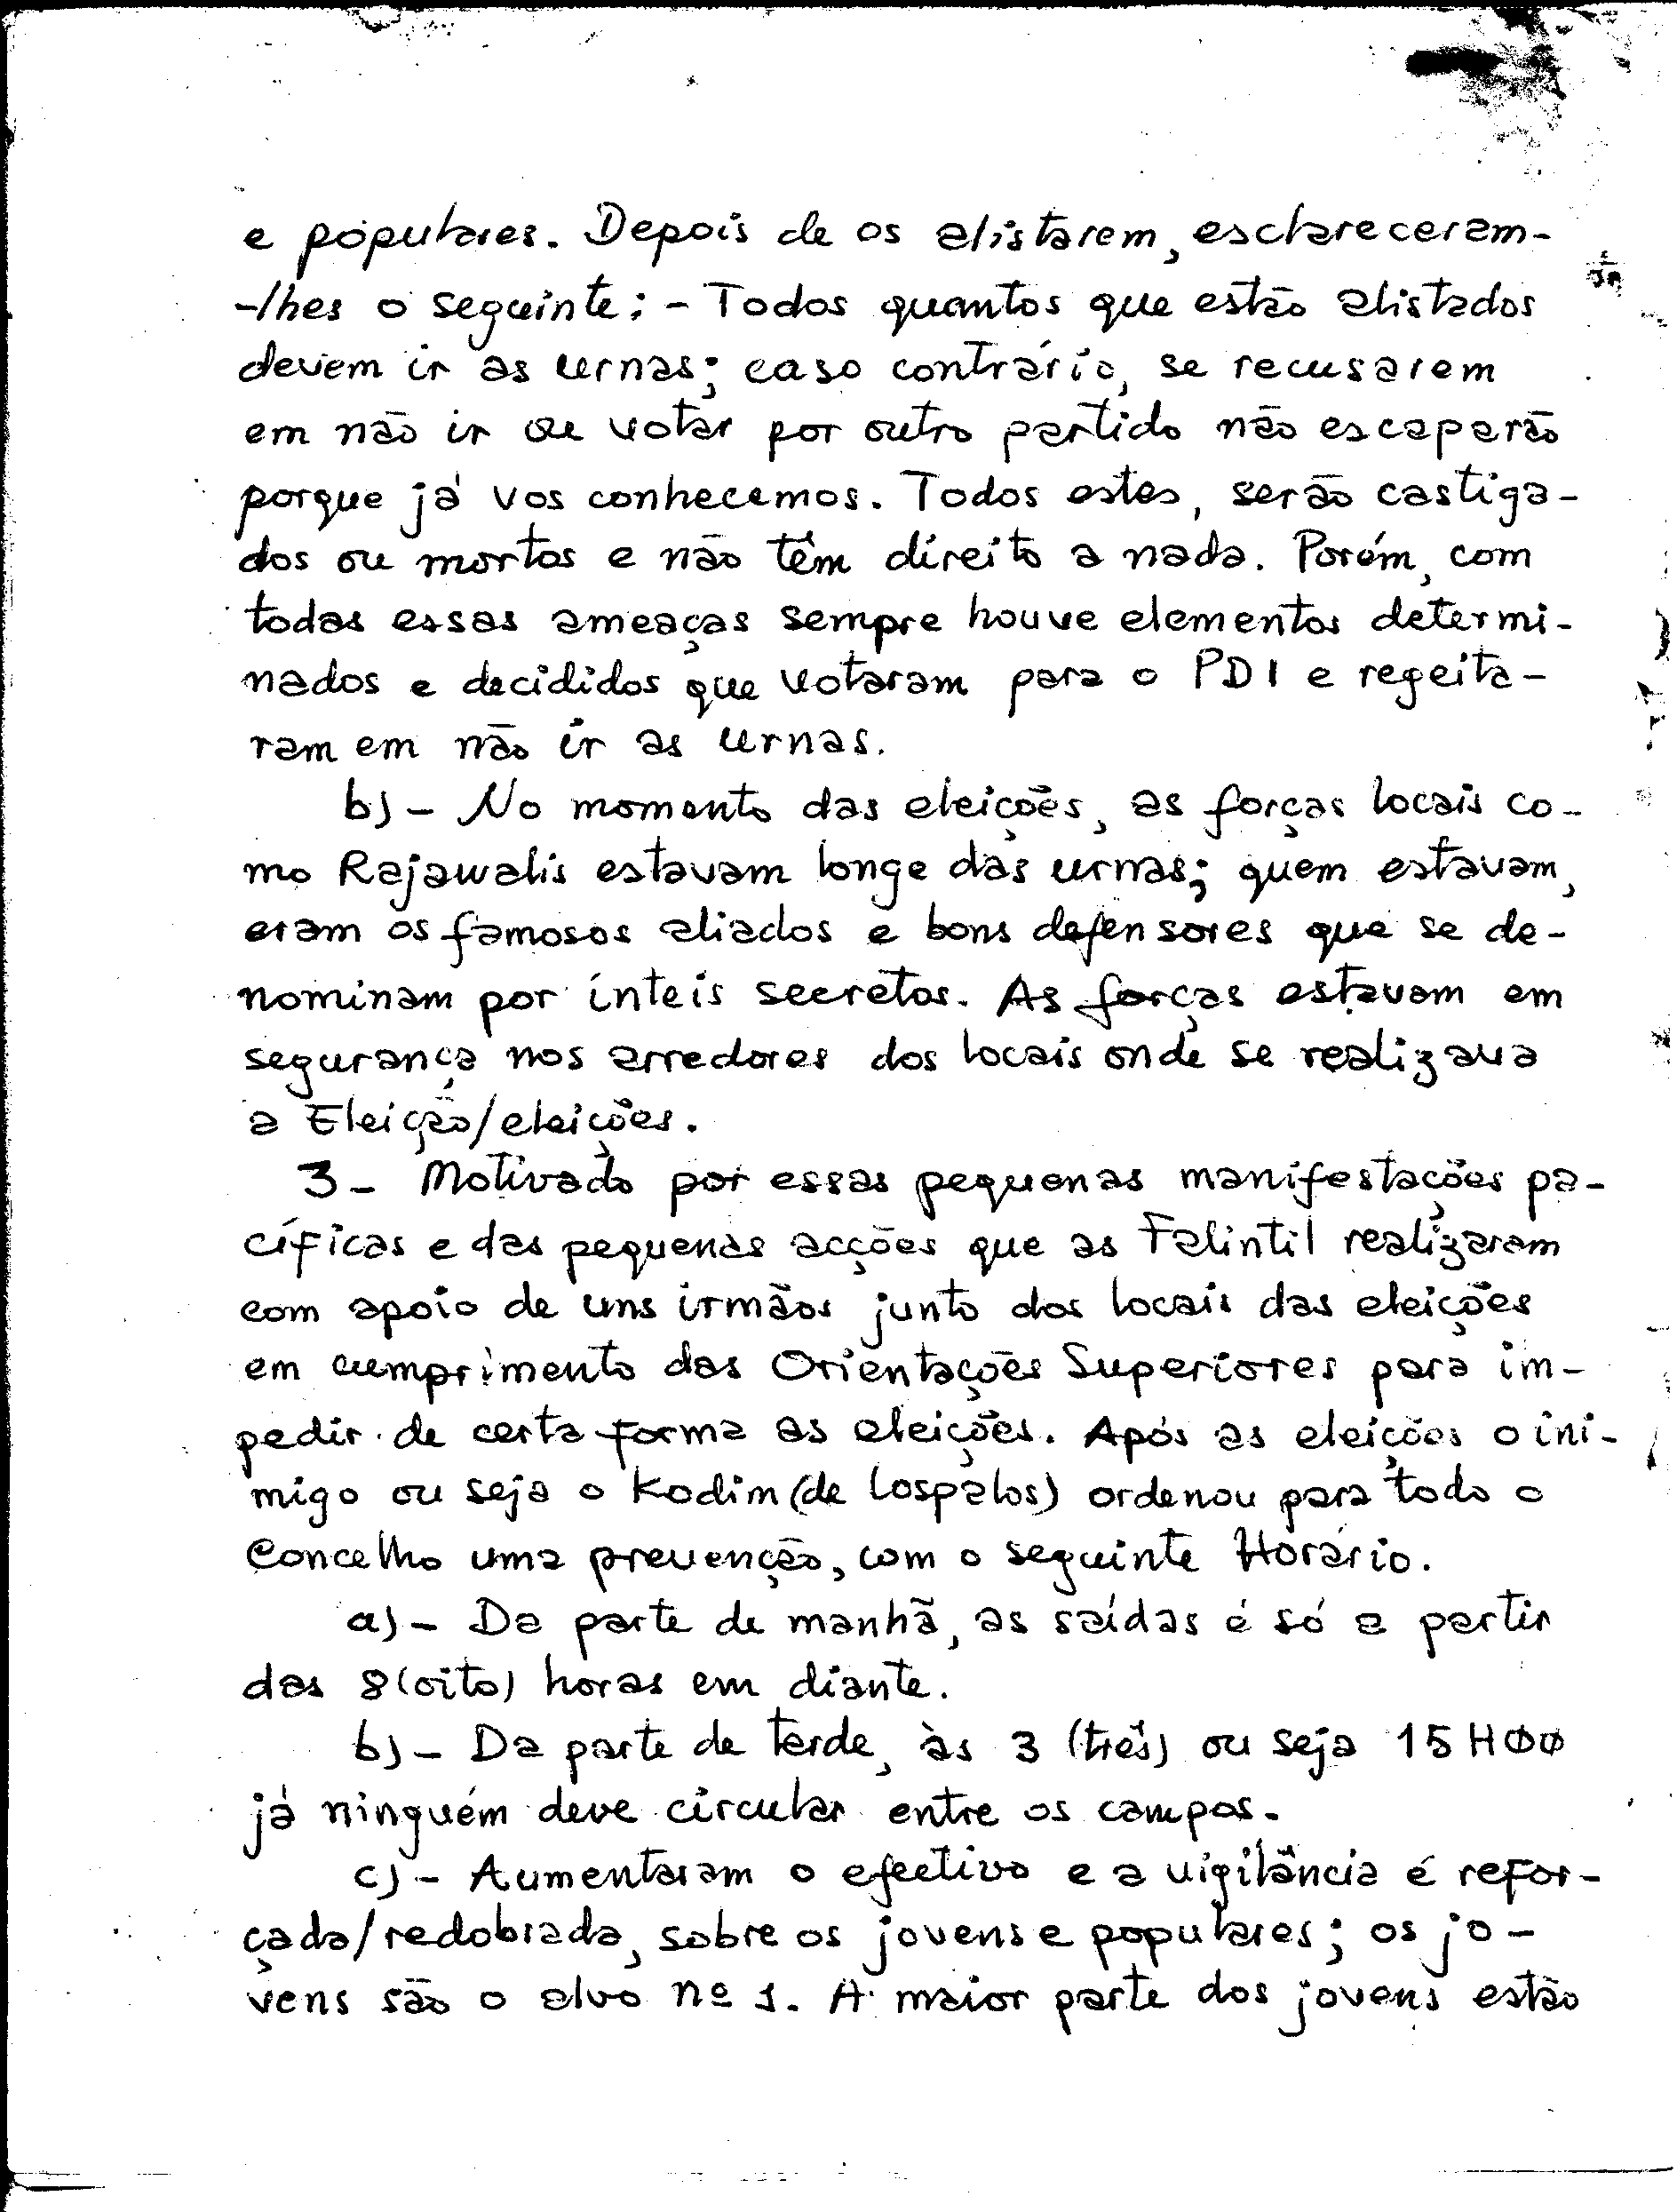 e populares. Depois de os alistarem, esclareceram-
-lhes o seguinte: - Todos quantos que estão alistados
devem ir as urnas; caso contrário, se recusarem
em não ir ou votar por outro partido não escaparão
porque já vos conhecemos. Todos estes, serão castiga-
dos ou mortos e não têm direito a nada. Porém, com
todas essas ameaças sempre houve elementos determi-
nados e decididos que votaram para o PDI e regeita-
ram em não ir as urnas.
b) - No momento das eleições, as forças locais co-
mo Rajawalis estavam longe das urnas; quem estavam,
eram os famosos aliados e bons defensores que se de-
nominam por inteis secretos. As forças estavam em
segurança nos arredores dos locais onde se realizava
a Eleição/eleições.
3 - Motivado por essas pequenas manifestações pa-
cíficas e das pequenas acções que as Falintil realizaram
com apoio de uns irmãos junto dos locais das eleições
em cumprimento das Orientações Superiores para im-
pedir de certa forma as eleições. Após as eleições o ini-
migo ou seja o Kodim (de Lospalos) ordenou para todo o
Concelho uma prevenção, com o seguinte Horário.
a) - Da parte de manhã, as saídas é só a partir
das 8 (oito) horas em diante.
b) - Da parte de tarde, às 3 (três) ou seja 15H00
já ninguém deve circular entre os campos.
c) - Aumentaram o efectivo e a vigilância é refor-
çada/redobrada, sobre os jovens e populares; os jo-
vens são o alvo nº 1. A maior parte dos jovens estão